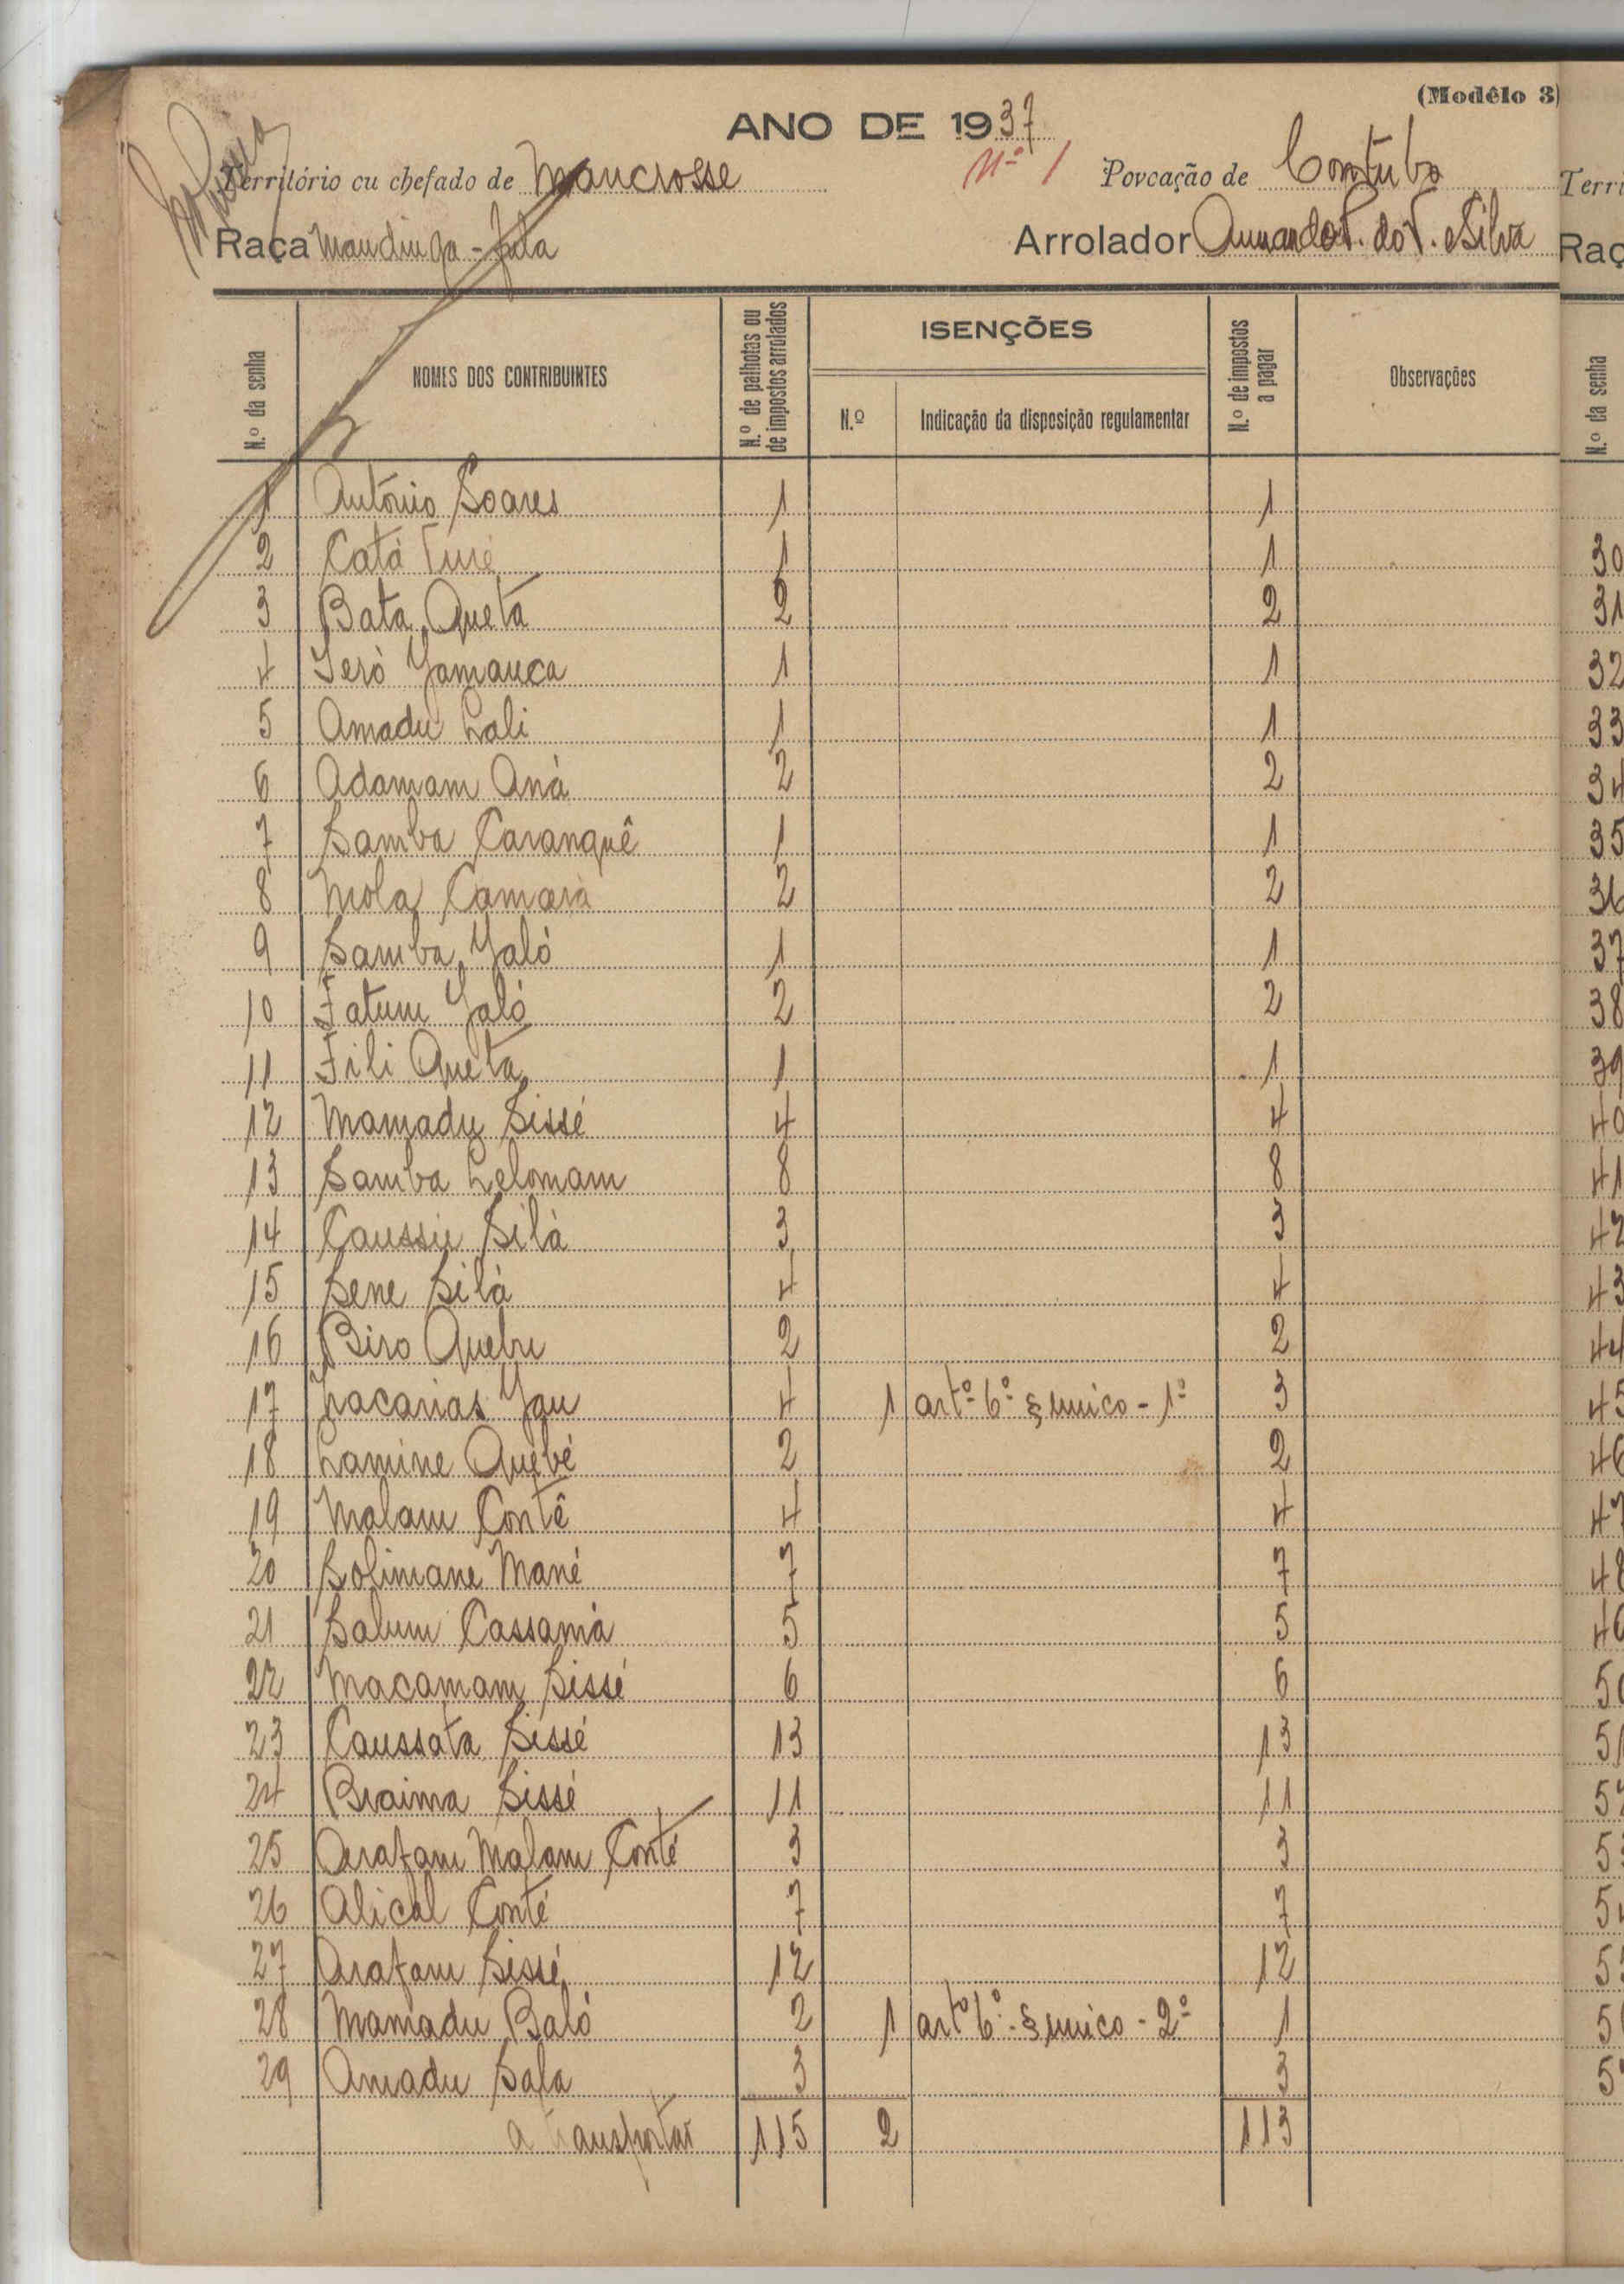 (Modêlo 3)
ANO DE 1937
Nº 1
Território cu chefado de Mancrosse Povcação de Contubo
Raça Mandinga - Fula Arrolador Armando T. do T. e Silva
N.º da senha NOMES DOS CONTRIBUINTES N.º de palhotas ou de impostos arrolados ISENÇÕES N.º de impostos a pagar Observações
N.º Indicação da disposição regulamentar
1 António Soares 1 1
2 Catá Turé 1 1
3 Bata Queta 2 2
4 Ieró Jamanca 1 1
5 Amadu Lali 1 1
6 Adamam Aná 2 2
7 Samba Caranquê 1 1
8 Mola Camará 2 2
9 Samba Jaló 1 1
10 Fatum Jaló 2 2
11 Fili Queta 1 1
12 Mamadu Sissé 4 4
13 Samba Lelomam 8 8
14 Caussu Silá 3 3
15 Sene Silá 4 4
16 Biro Quebu 2 2
17 Zacarias Jau 4 1 artº 6º § unico - 1º 3
18 Lamine Quebé 2 2
19 Malam Contê 4 4
20 Solimane Mané 7 7
21 Salum Cassamá 5 5
22 Macamam Sissé 6 6
23 Caussata Sissé 13 13
24 Braima Sissé 11 11
25 Arafam Malam Conté 3 3
26 Alical Conté 7 7
27 Arafam Sissé 12 12
28 Mamadu Baló 2 1 artº 6º - § unico - 2º 1
29 Amadu Sala 3 3
a transportar 115 2 113
Terri
Raç
N.º da senha
30
31
32
33
34
35
36
37
38
39
40
41
42
43
44
45
46
47
48